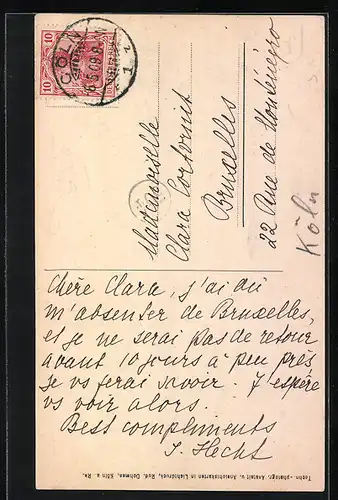 Chère Clara, j'ai dû
m'absenter de Bruxelles,
et je ne serai pas de retour
avant 10 jours à peu près
Je vs ferai savoir. J'espère
vs voir alors.
Best compliments
J. Hecht
Mademoiselle
Clara
Bruxelles
22 Rue de Monténégro
Köln
CÖLN
6.5.09.8
1
10
10
DEUTSCHES REICH
Techn.-photogr. Anstalt u. Ansichtskarten in Lichtdruck, Rud. Dohmen, Köln a. Rh.